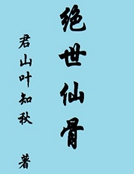 绝世仙骨
君山叶知秋 著